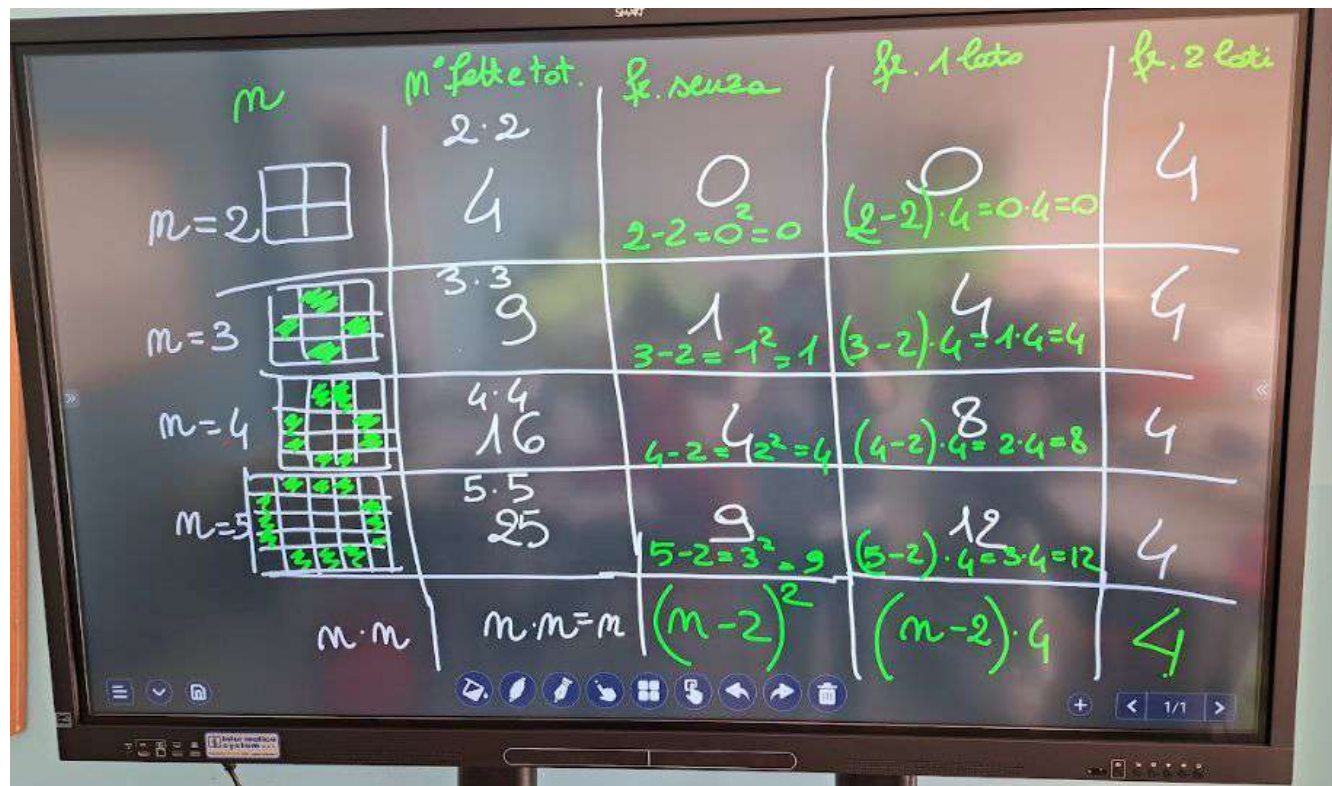 SMART
n
n° fette tot.
fe. senza
fe. 1 lato
fe. 2 lati
n=2
2·2
4
0
2-2=0²=0
0
(2-2)·4=0·4=0
4
n=3
3·3
9
1
3-2=1²=1
4
(3-2)·4=1·4=4
4
n=4
4·4
16
4
4-2=2²=4
8
(4-2)·4=2·4=8
4
n=5
5·5
25
9
5-2=3²=9
12
(5-2)·4=3·4=12
4
n·n
n·n=n
(n-2)²
(n-2)·4
4
1/1
informatica
system